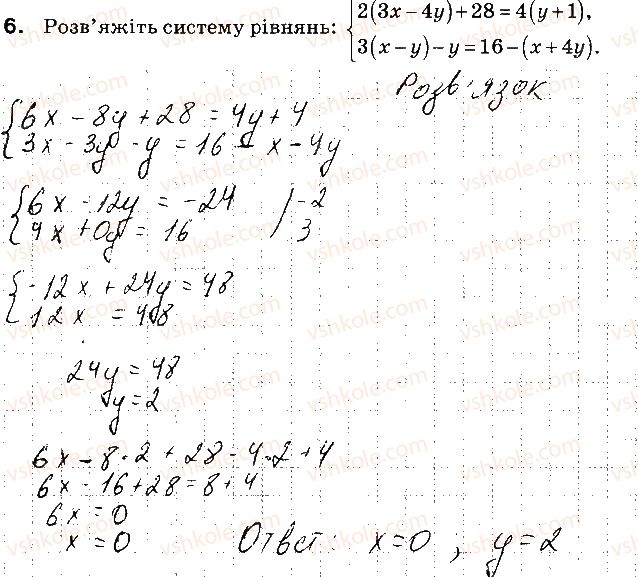 6. Розв'яжіть систему рівнянь: { 2(3x−4y)+28=4(y+1),
3(x−y)−y=16−(x+4y).
Розв'язок
{ 6x − 8y + 28 = 4y + 4
3x − 3y − y = 16 − x − 4y
{ 6x − 12y = −24 | −2
4x + 0y = 16 | 3
{ −12x + 24y = 48
12x = 48
24y = 48
y = 2
6x − 8·2 + 28 − 4·2 + 4
6x − 16 + 28 = 8 + 4
6x = 0
x = 0
Ответ: x = 0, y = 2
vshkole.com